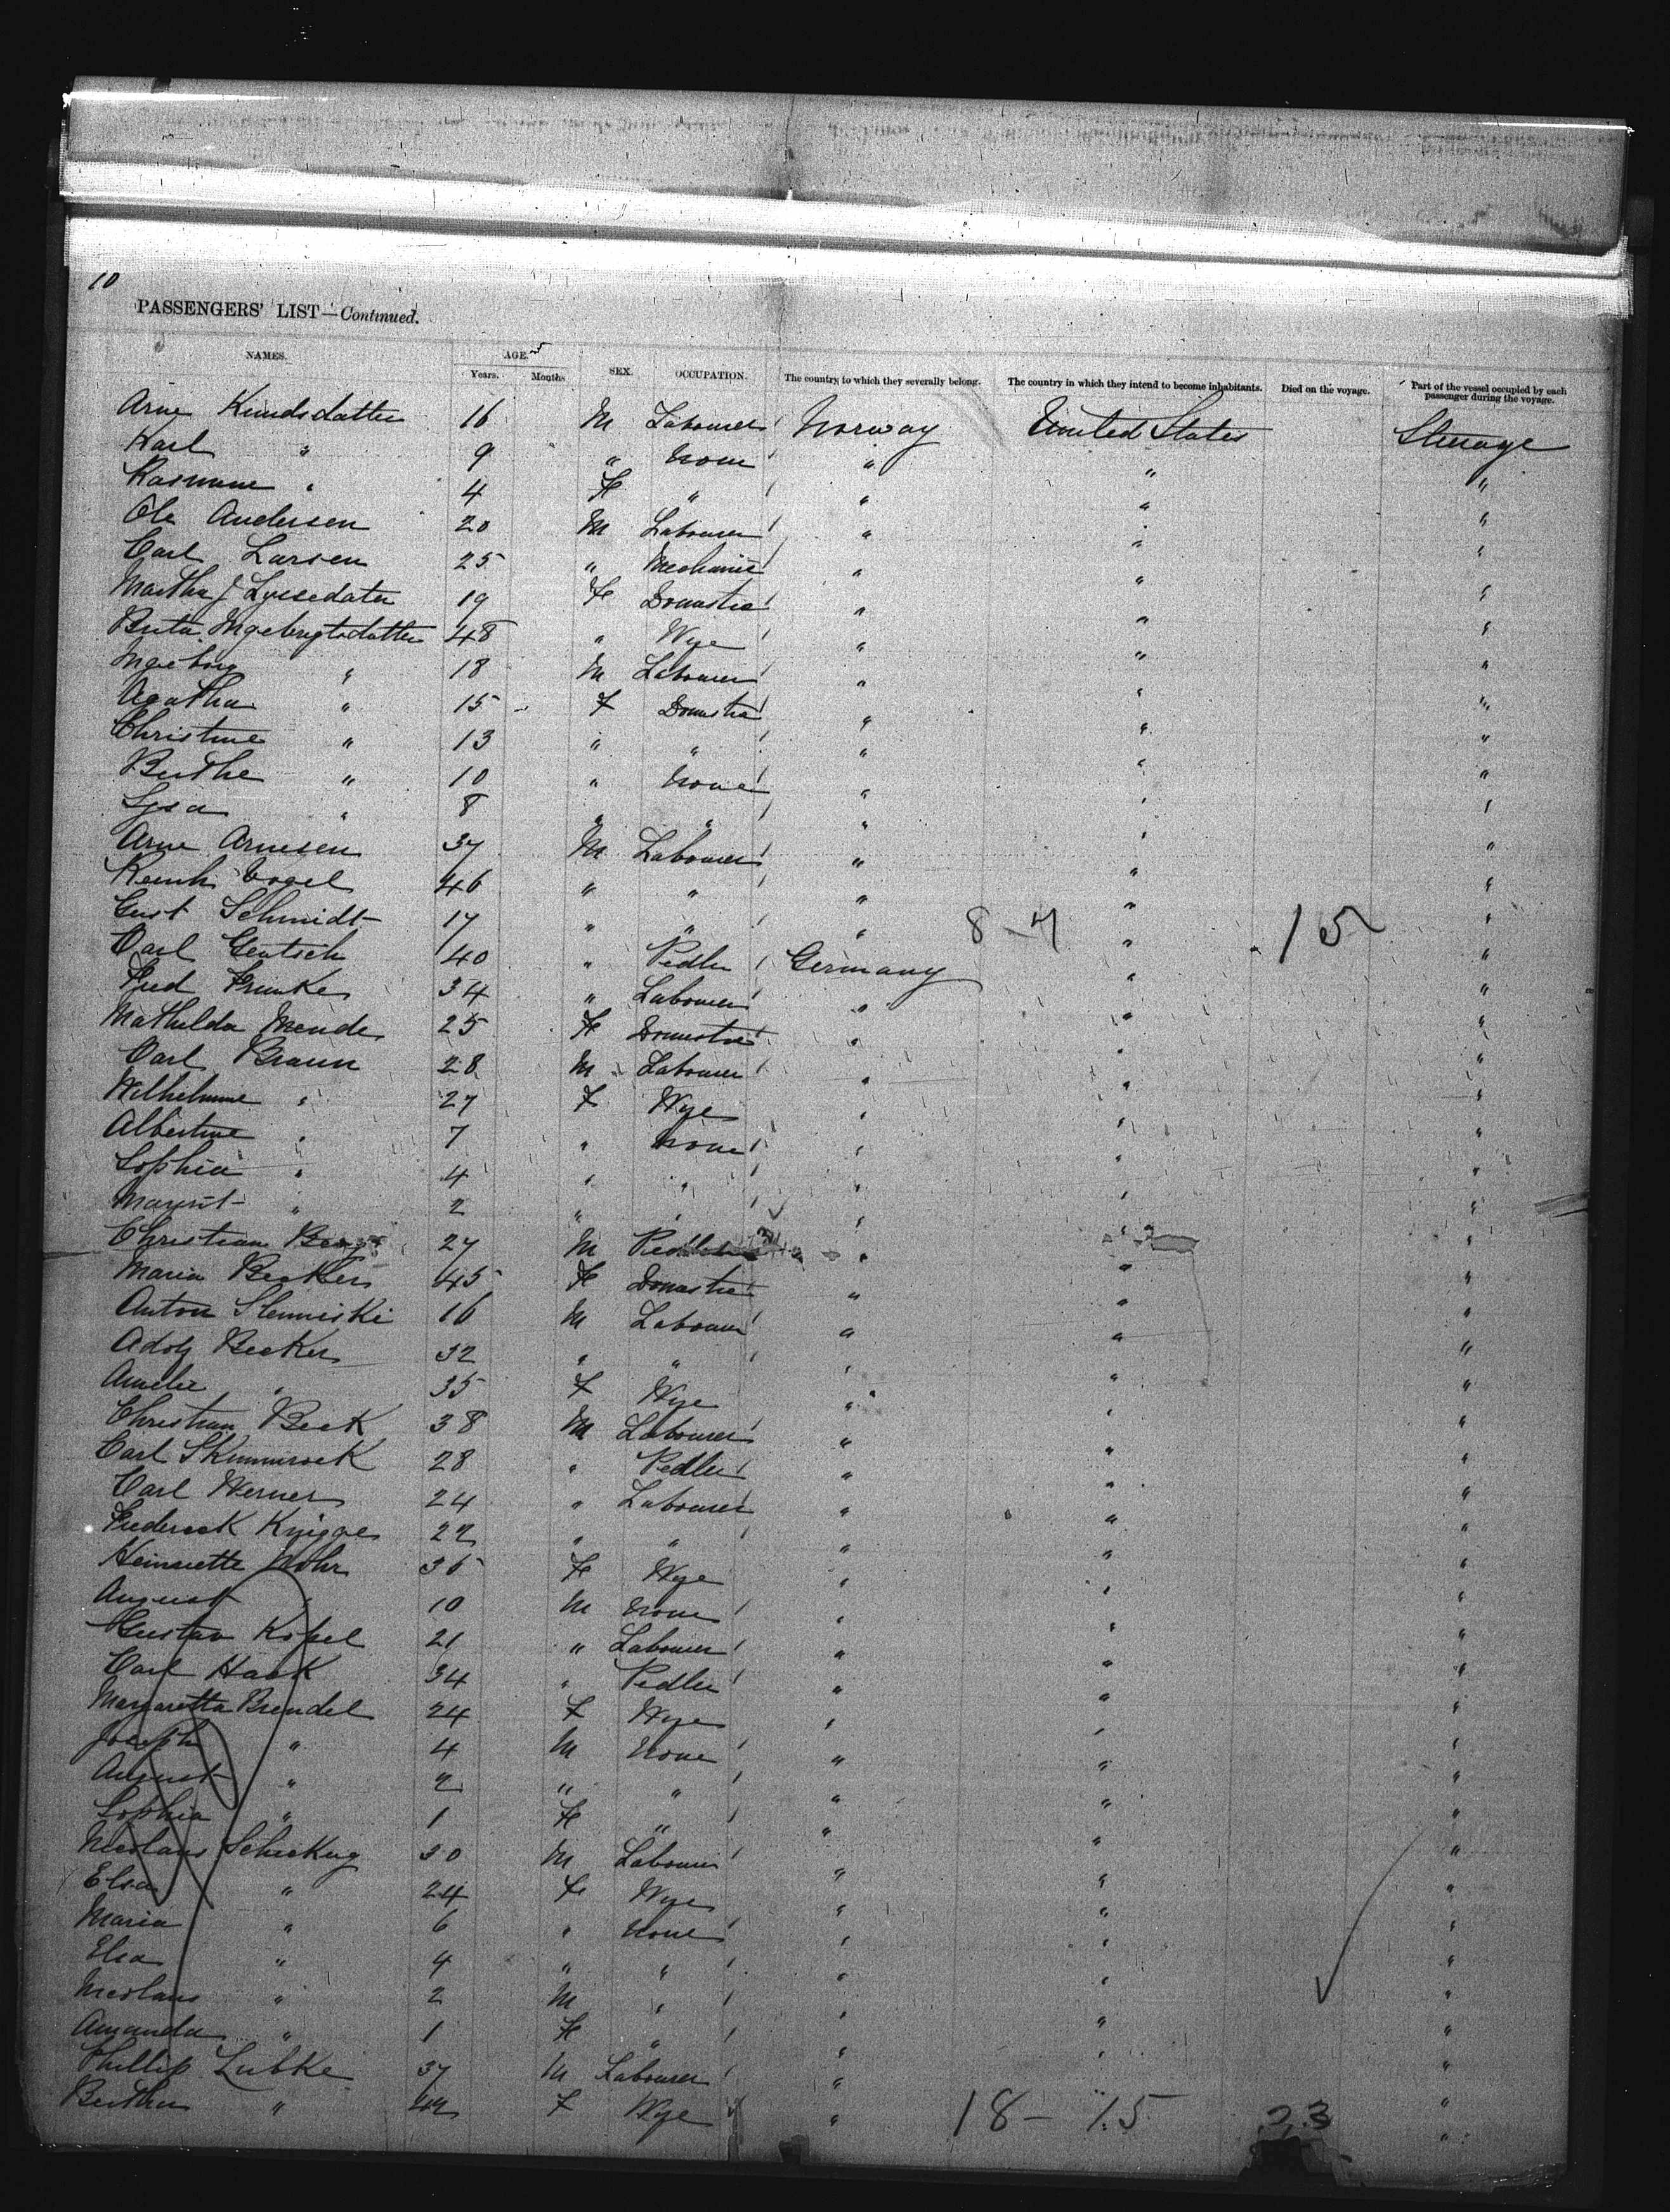 10
PASSENGERS' LIST—Continued.
NAMES. AGE. Years. Months SEX. OCCUPATION. The country to which they severally belong. The country in which they intend to become inhabitants. Died on the voyage. Part of the vessel occupied by each passenger during the voyage.
Arne Knudsdatter 16 M Labourer Norway United States Steerage
Karl " 9 " None " " "
Rasmine " 4 F " " " "
Ole Andersen 20 M Labourer " " "
Carl Larsen 25 " Mechanic " " "
Martha J Lyssedater 19 F Domestic " " "
Brita Ingebrigtsdatter 48 " Wife " " "
Ingeborg " 18 M Labourer " " "
Agatha " 15 F Domestic " " "
Christine " 13 " " " " "
Berthe " 10 " None " " "
Lysa " 8 " " " " "
Arne Arnesen 37 M Labourer " " "
Reinh Vogel 46 " " " " "
Gust Schmidt 17 " " " 8-7 " 15 "
Carl Gentsch 40 " Pedler Germany " "
Fred Franke 34 " Labourer " " "
Mathilda Mende 25 F Domestic " " "
Carl Braun 28 M Labourer " " "
Wilhelmine " 27 F Wife " " "
Albertine " 7 " None " " "
Sophia " 4 " " " " "
Margrit " 2 " " " " "
Christian 27 M " " "
Maria Becker 45 F Domestic " " "
Anton 16 M Labourer " " "
Adolf Becker 32 " " " " "
Amelie " 35 F Wife " " "
Christian Beck 38 M Labourer " " "
Carl 28 " Pedler " " "
Carl Werner 24 " Labourer " " "
Frederick Knigge 22 " " " " "
Heinriette Mohr 35 F Wife " " "
August " 10 M None " " "
Gustav Kopel 21 " Labourer " " "
Carl Haak 34 " Pedler " " "
Margaretta Brendel 24 F Wife " " "
Joseph " 4 M None " " "
August " 2 " " " " "
Sophia " 1 F " " " "
Nicolaus 30 M Labourer " " "
Elsa " 24 F Wife " " "
Maria " 6 " None " " "
Elsa " 4 " " " " "
Nicolaus " 2 M " " " "
Amanda " 1 F " " " "
Phillip Lubke 37 M Labourer " " "
Bertha " F Wife " 18-15 23 "